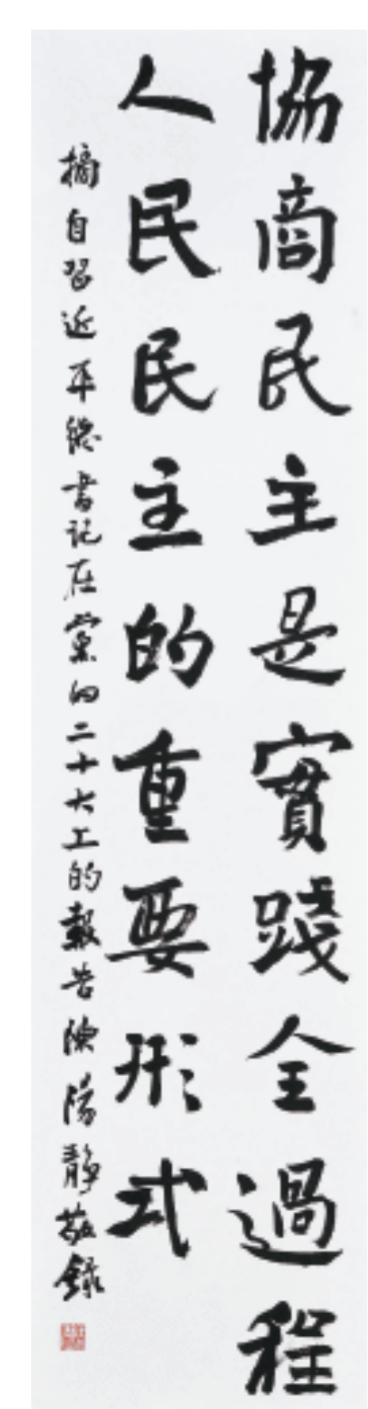 協商民主是實踐全過程
人民民主的重要形式
摘自習近平總書記在黨的二十大上的報告陳陽靜敬錄